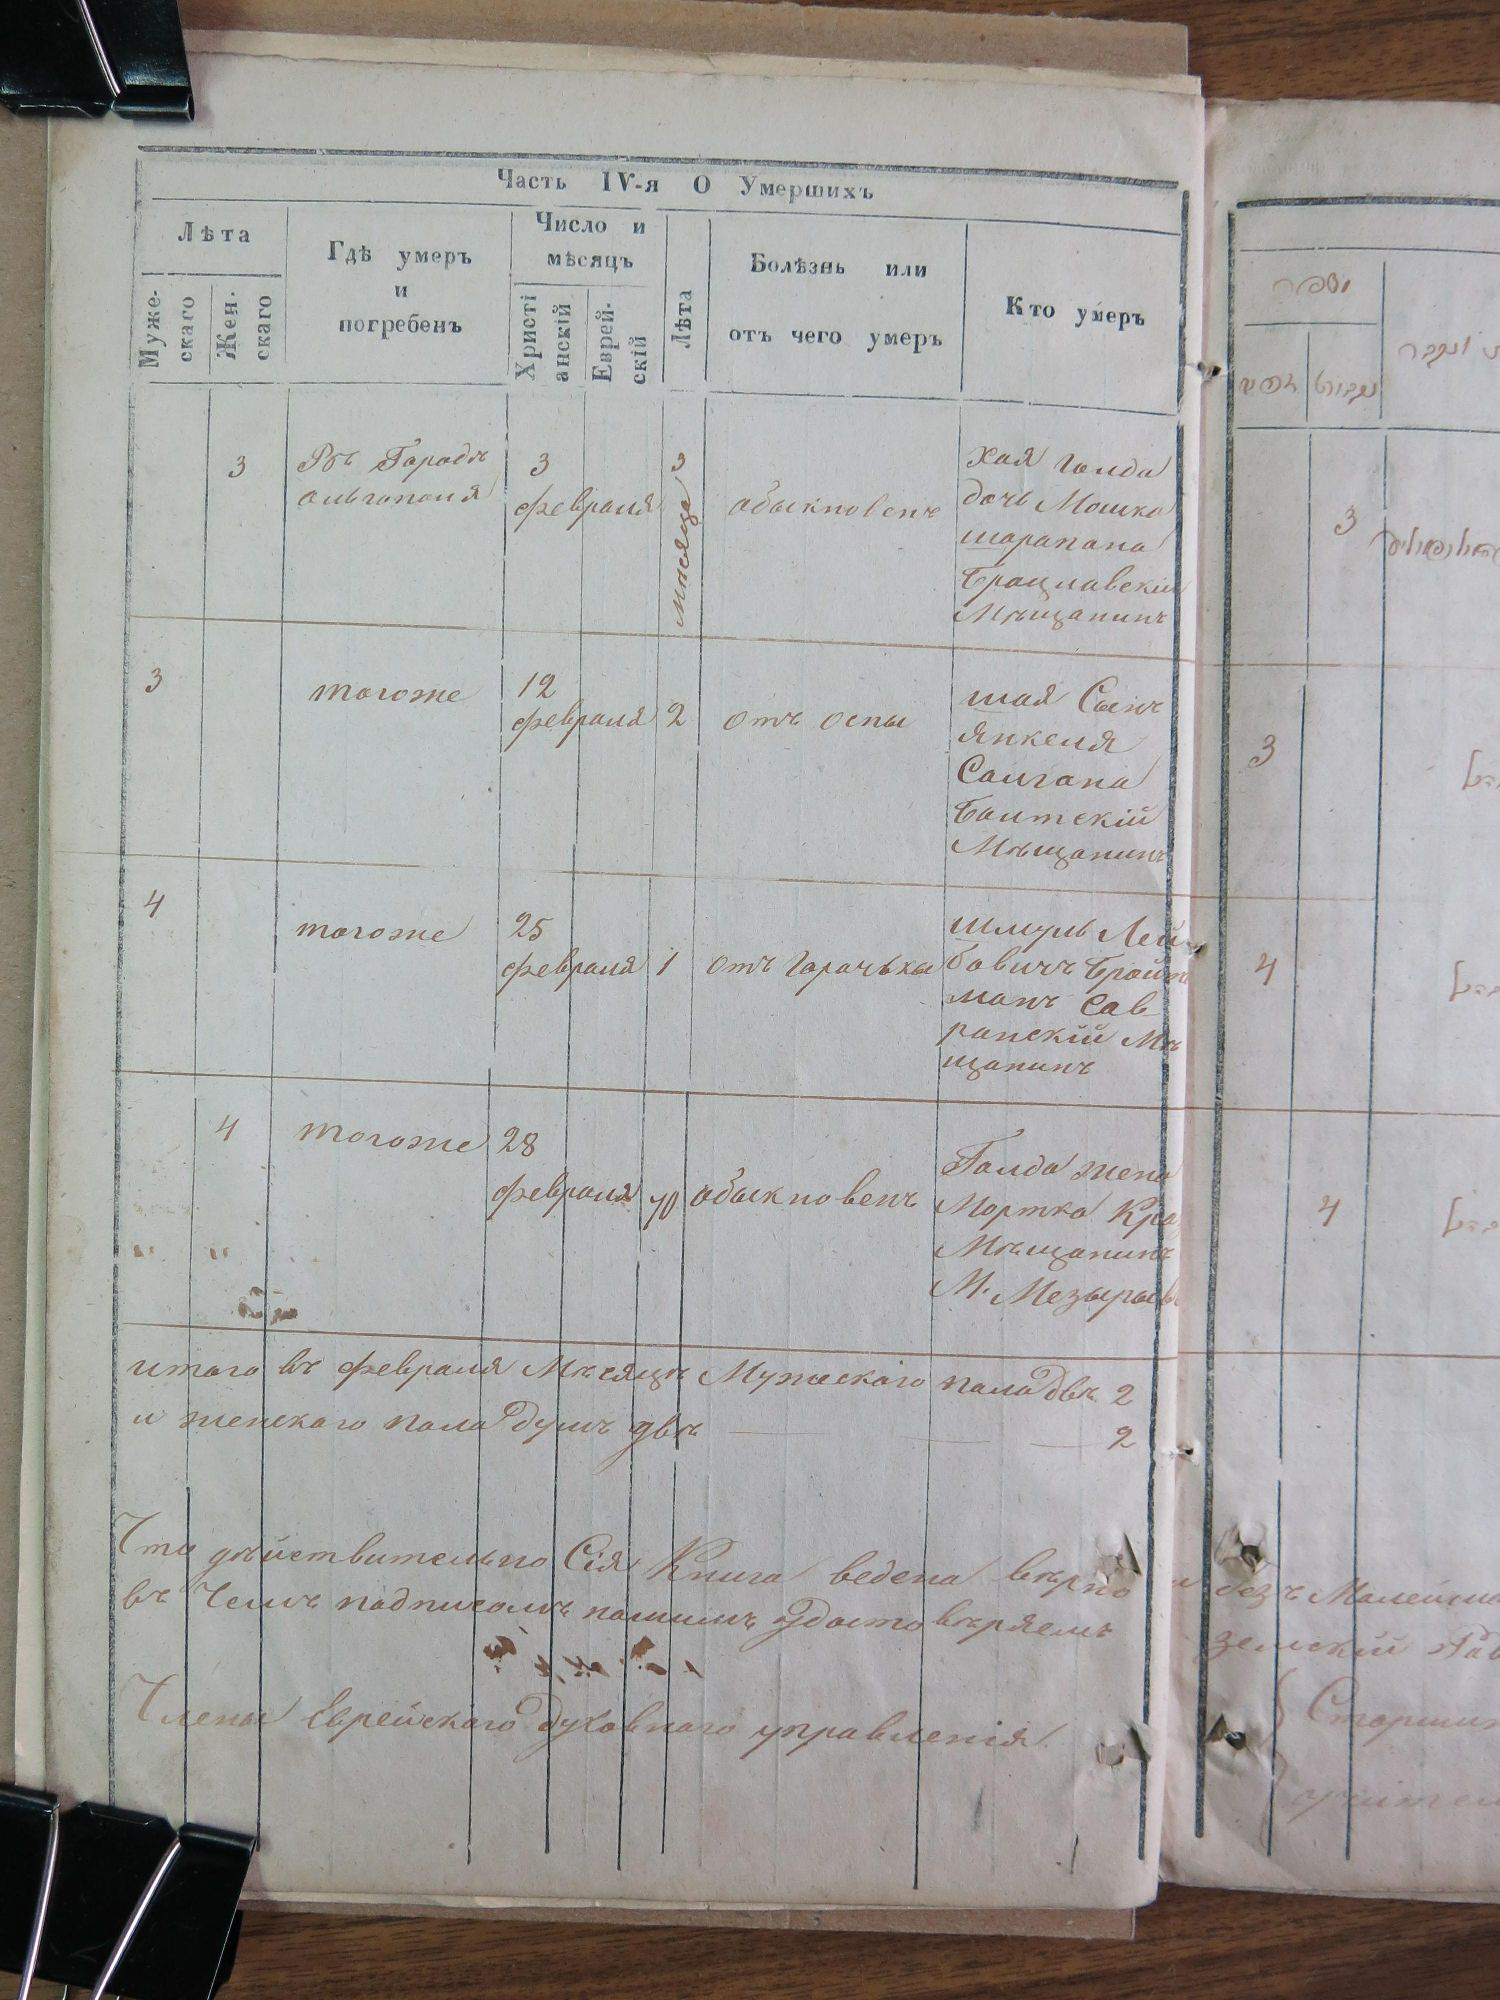 Часть IV-я О Умершихъ
Лѣта
Муже-
скаго
Жен.
скаго
Гдѣ умеръ
и
погребенъ
Число и
мѣсяцъ
Христі
анскій
Еврей-
скій
Лѣта
Болѣзнь или
отъ чего умеръ
Кто умеръ
3
Въ Городѣ
Ольгополя
3
февраля
3
мѣсяца
обыкновенъ
Хая Голда
дочь Мошка
шарапана
Брацлавскій
Мѣщанинъ
3
тогоже
12
февраля
2
отъ оспы
шая Сынъ
Янкеля
Салгана
Балтскій
Мѣщанинъ
4
тогоже
25
февраля
1
отъ Гарачьки
шмуль Лей
бовичъ Бройт
манъ Сав
ранскій Мѣ
щанинъ
4
тогоже
28
февраля
70
обыкновенъ
Голда жена
Мортка
Мѣщанинъ
М.
итого въ февраля Мѣсяцѣ Мужескаго пола двѣ 2
и женскаго пола душъ двѣ 2
Что дѣйствительно Сія Книга ведена вѣрно
въ Чемъ подписомъ нашимъ удостовѣряемъ
Члены Еврейскаго духовнаго управленія
3
3
4
4
безъ
земскій